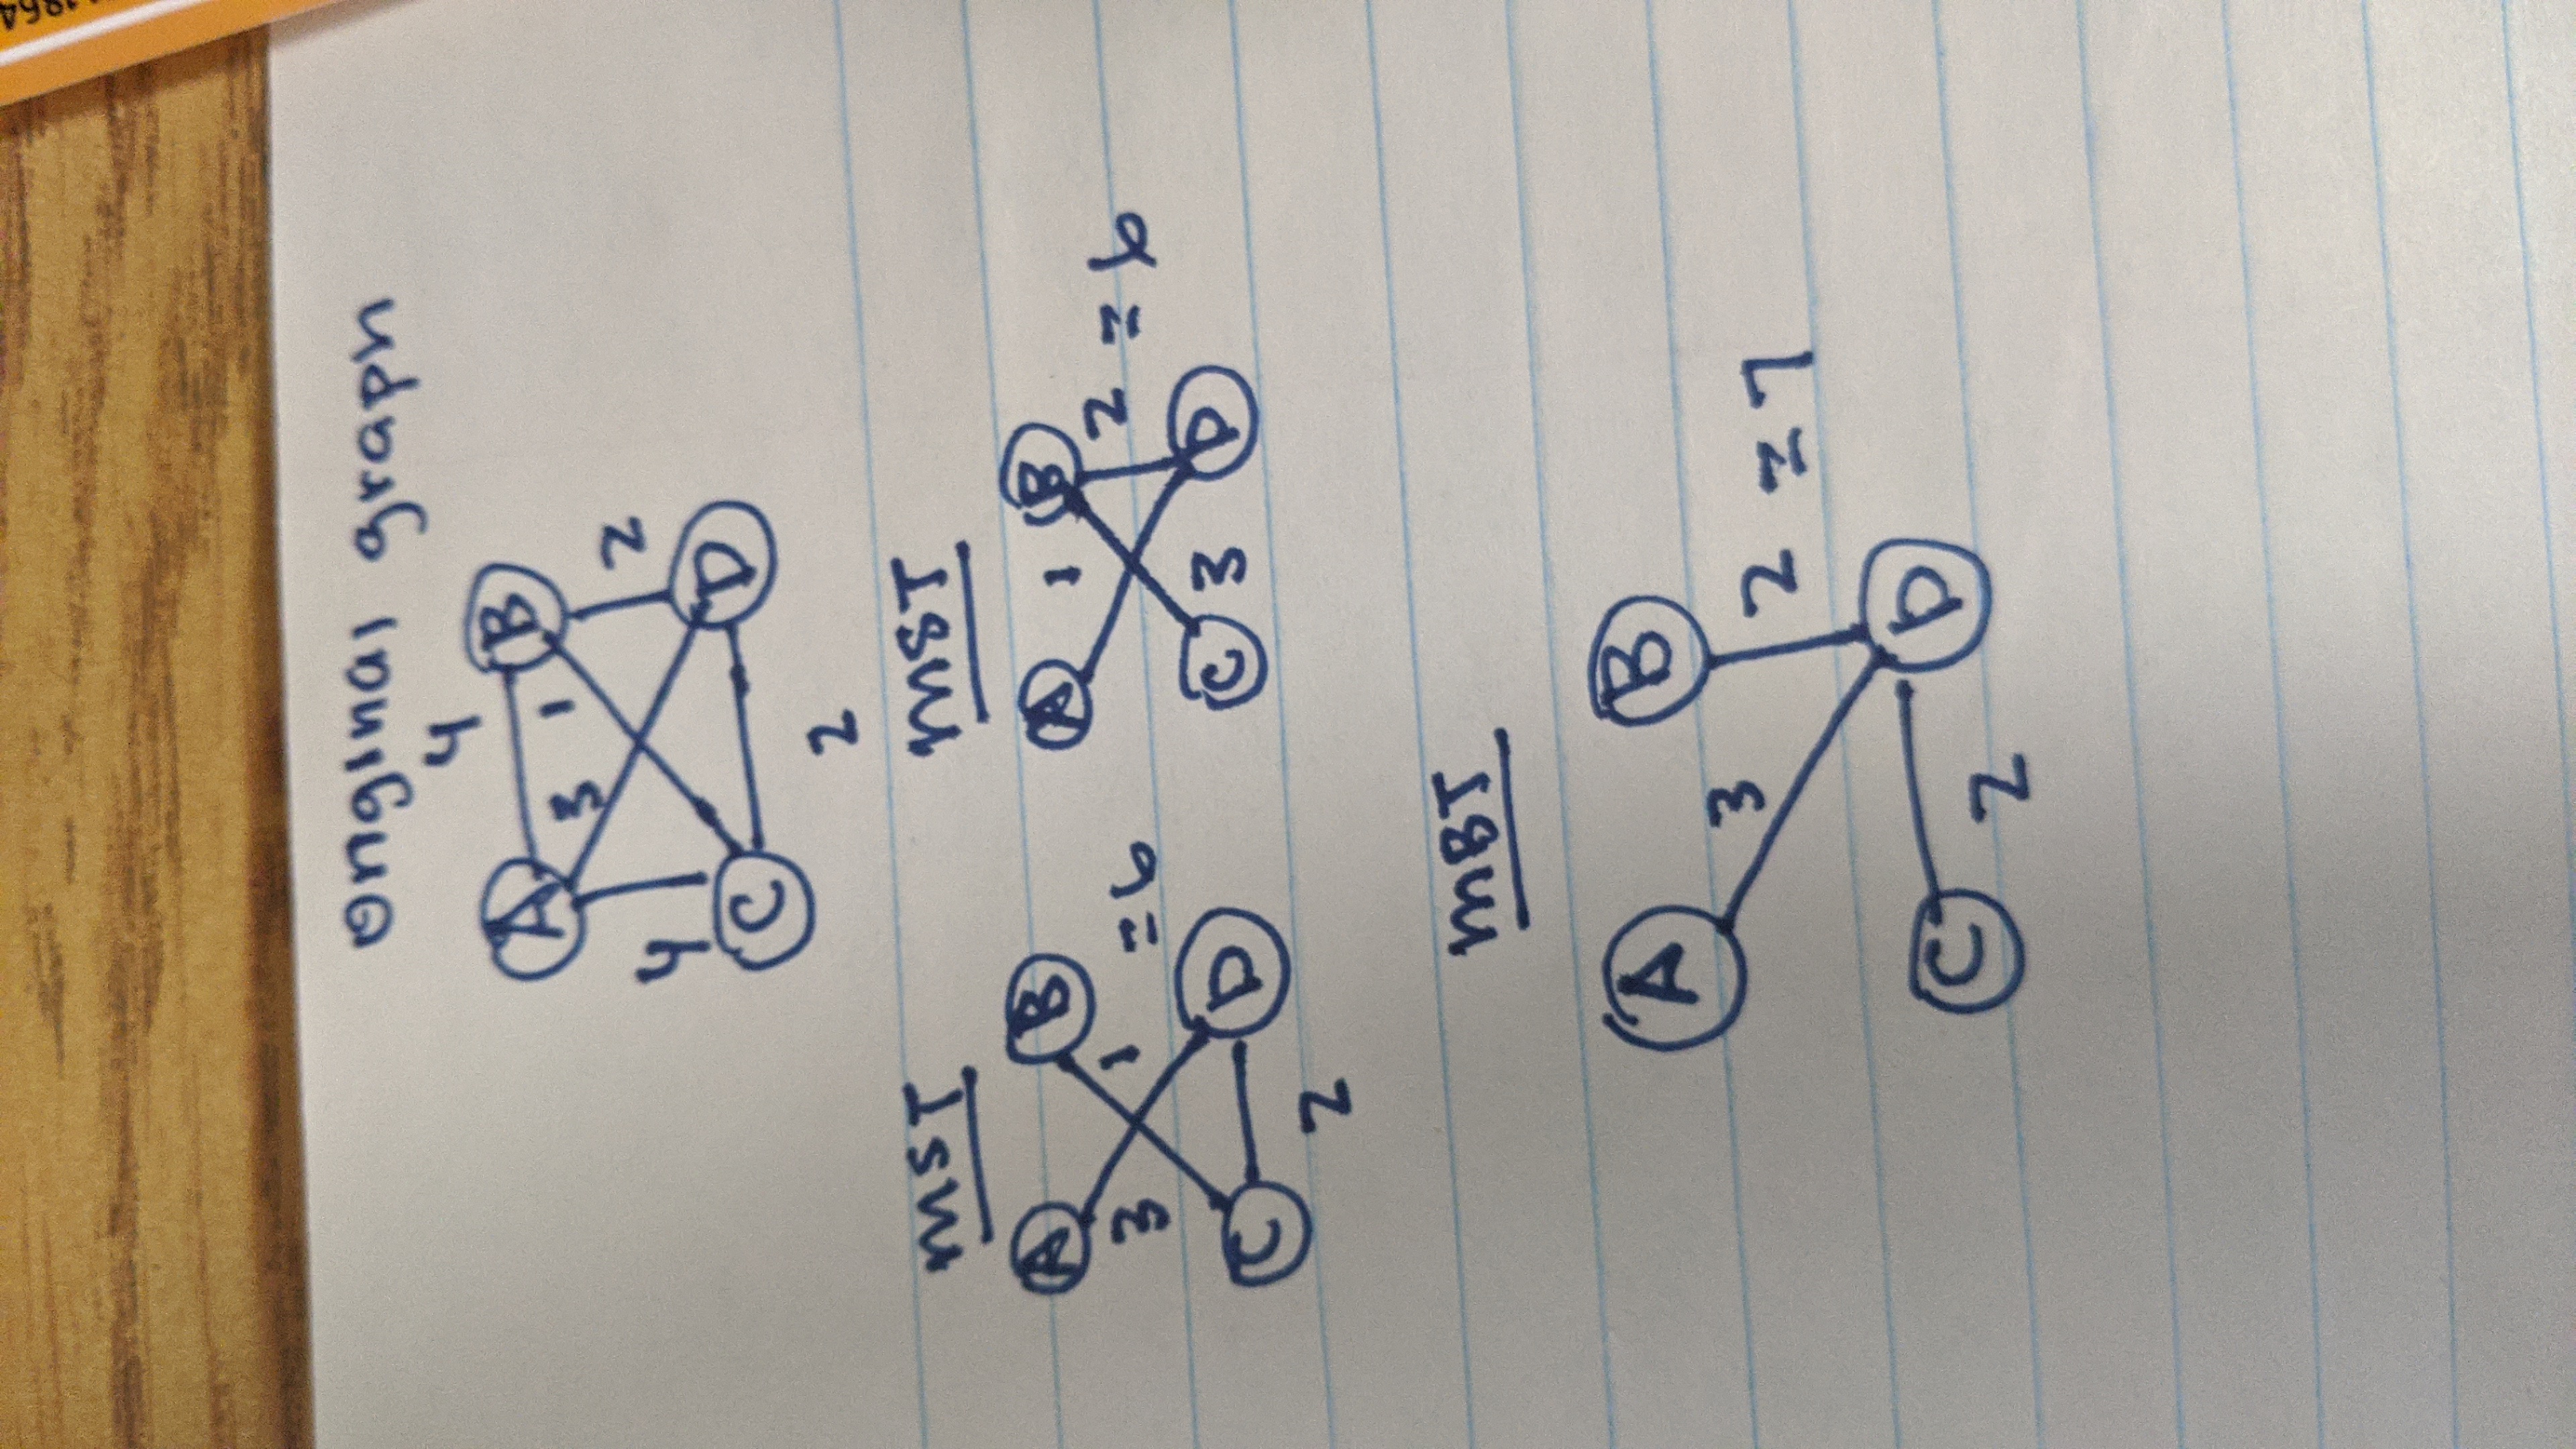 original graph
4
A B
3 1
2
4
C D
2
MST MST
A B
3 1 = 6
C D
2
A 1 B
2 = 6
C 3 D
MBT
A B
3
2 = 7
C D
2